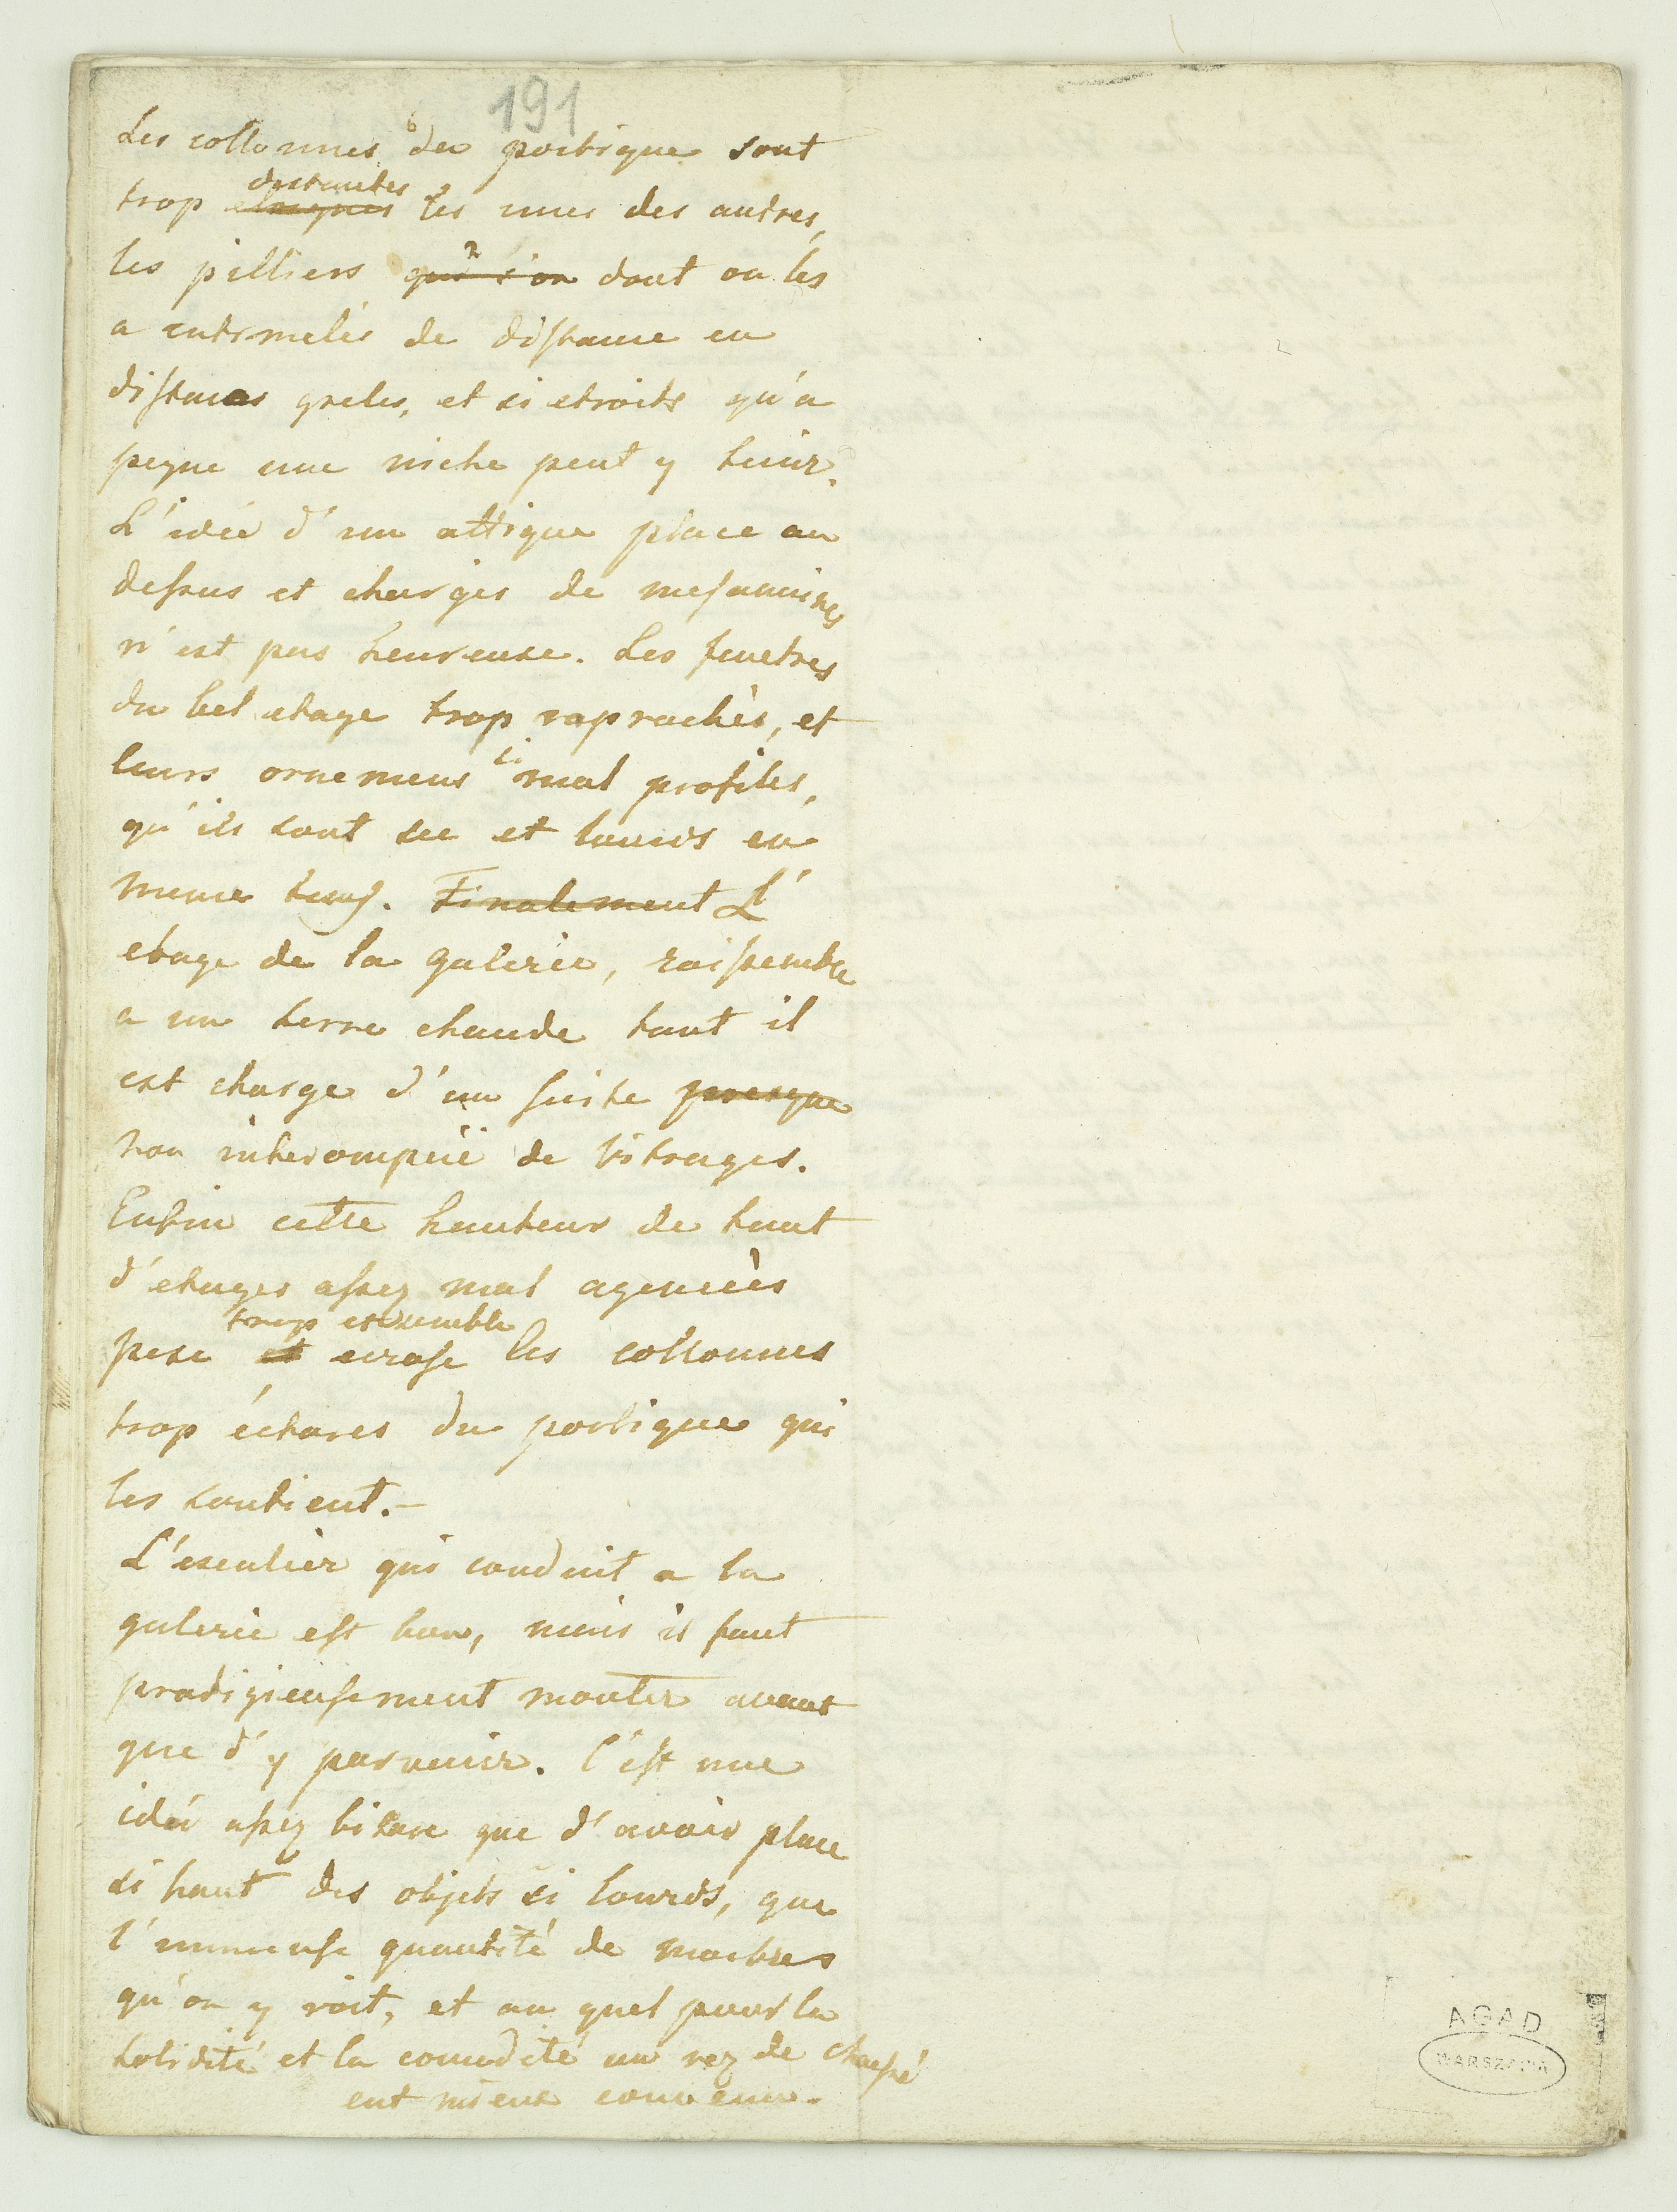 191
Les collonnes du portique sont
trop distantes les unes des autres,
les pilliers dont on les
a entremelés de distance en
distances greles, et si etroits qu'a
peyne une niche peut y tenir.
L'idée d'un attique place au
dessus et chargés de mesanines
n'est pas heureuse. Les fenetres
du bel etage trop raprochès, et
leurs ornemens si mal profiles,
qu'ils sont sec et lourds en
meme tems. Finalement L'
etage de la galerie, raissemble
a un serre chaude tant il
est charge d'un suite presque
non interompuë de vitrages.
Enfin cette hauteur de tant
d'etages assez mal agencès
trop et semble
pese et ecrase les collonnes
trop éctares du portique qui
les soutient.-
L'escalier qui conduit a la
galerie est bon, mais il faut
prodigieusement monter avant
que d'y parvenir. C'est une
idée assez bizare que d'avoir place
si haut des objets si lourds, que
l'immense quantité de marbres
qu'on y voit, et au quel pour la
solidité et la comodité un rez de chaussé
eut mieux convenu.
AGAD
WARSZAWA